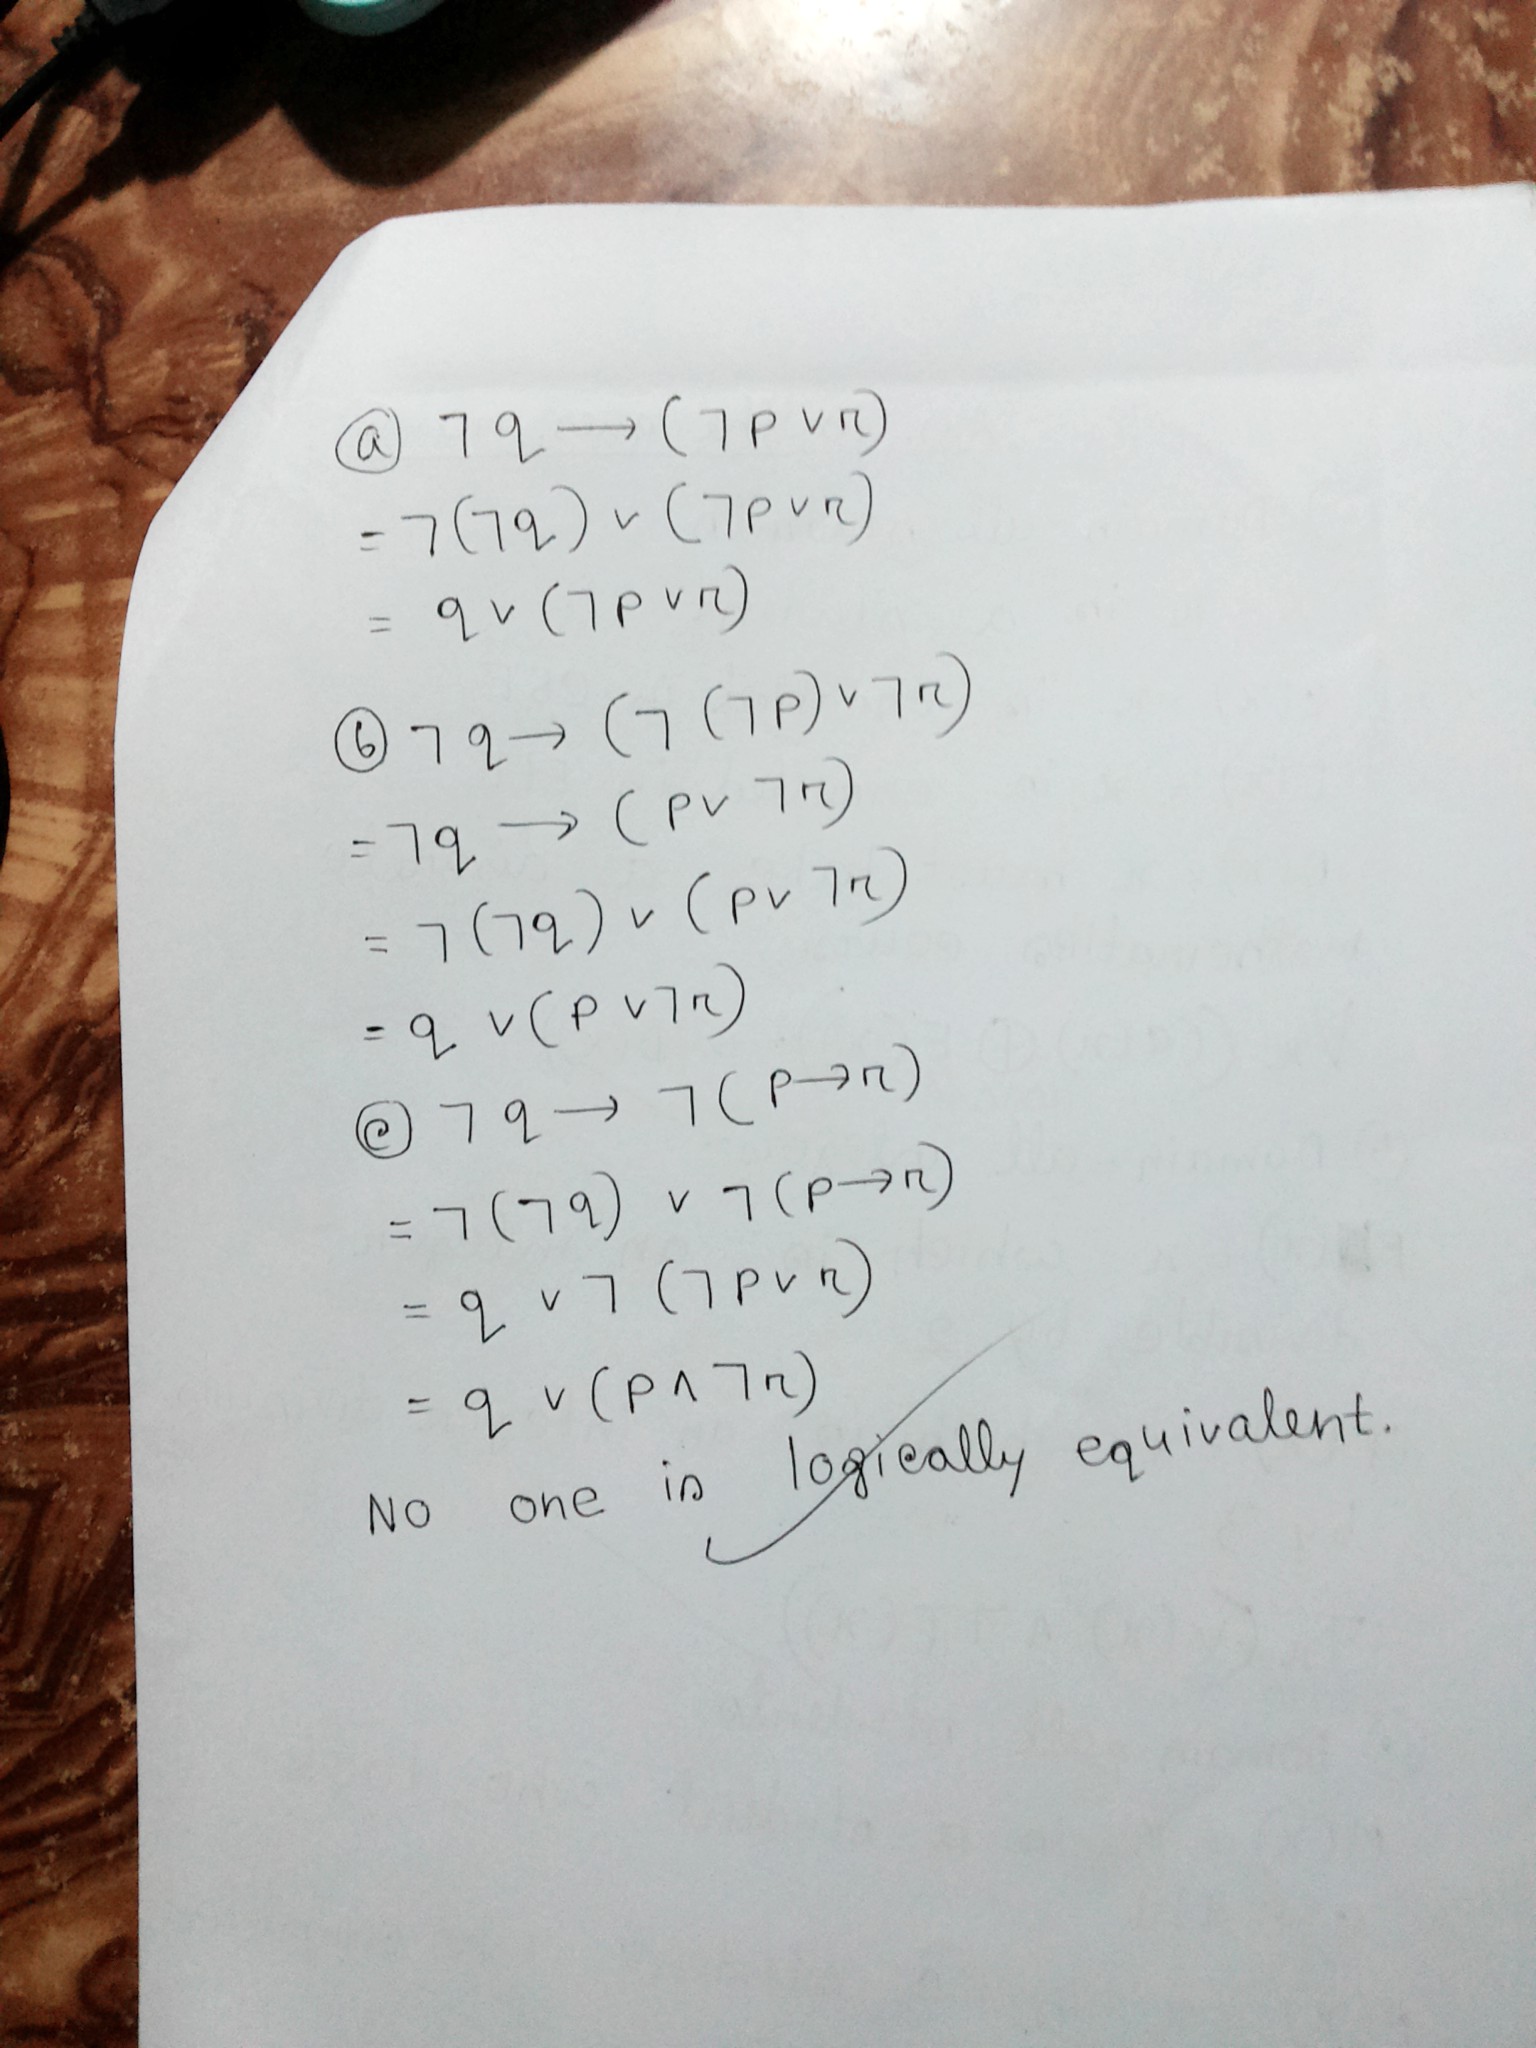 ⓐ ¬q → (¬p ∨ r)
= ¬(¬q) ∨ (¬p ∨ r)
= q ∨ (¬p ∨ r)
ⓑ ¬q → (¬(¬p) ∨ ¬r)
= ¬q → (p ∨ ¬r)
= ¬(¬q) ∨ (p ∨ ¬r)
= q ∨ (p ∨ ¬r)
ⓒ ¬q → ¬(p → r)
= ¬(¬q) ∨ ¬(p → r)
= q ∨ ¬(¬p ∨ r)
= q ∨ (p ∧ ¬r)
No one is logically equivalent.